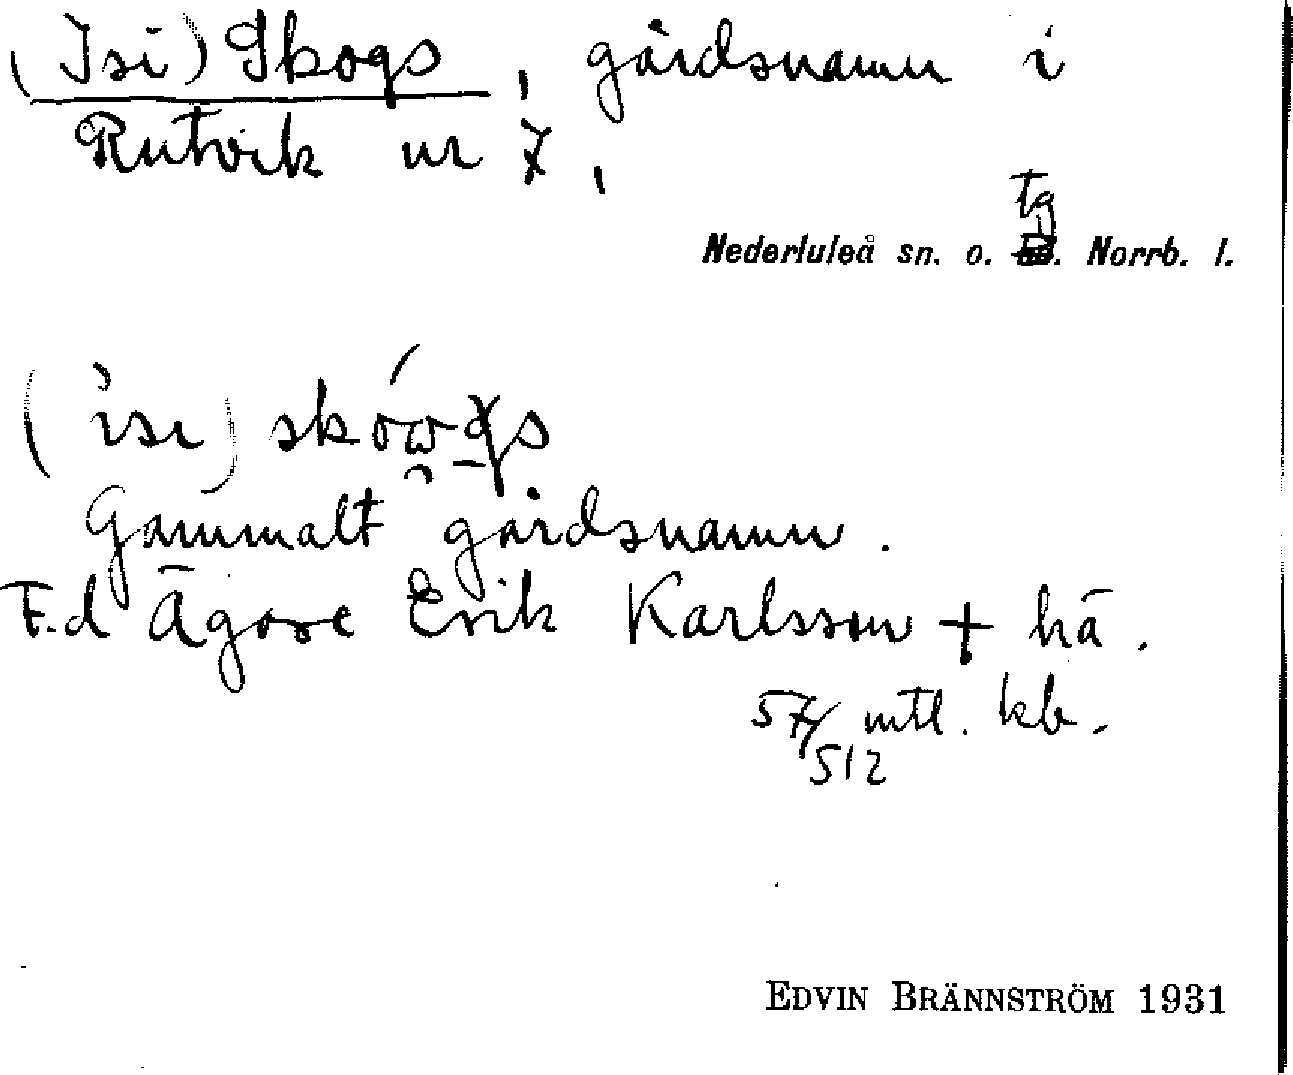 (Isi) Skogs, gårdsnamn i
Rutvik nr 7,
tg
Nederluleå sn. o. Norrb. l.
(ise) skówgs
Gammalt gårdsnamn.
F.d Ägare Erik Karlsson + hä.
57/512 mtl. kb.
EDVIN BRÄNNSTRÖM 1931